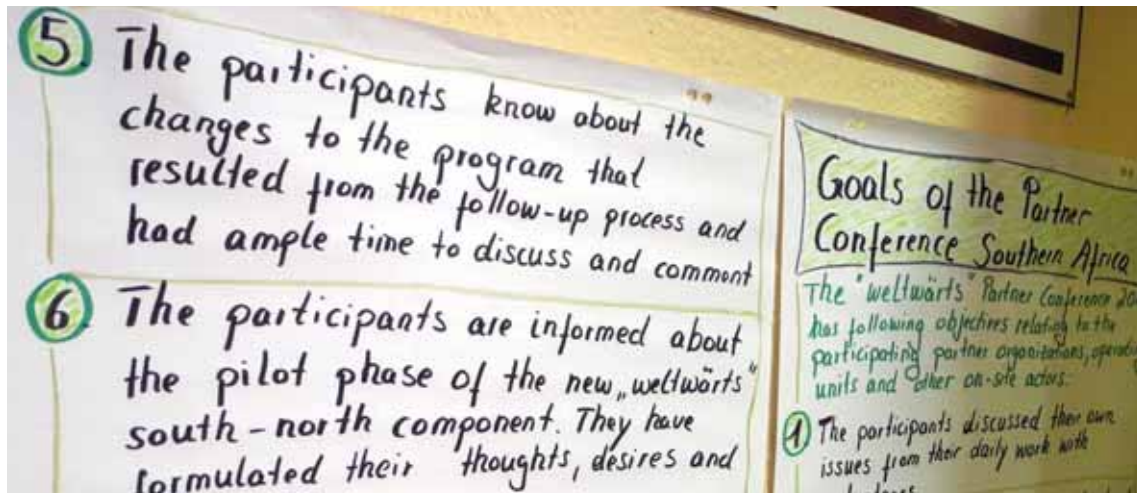 5.
The participants know about the
changes to the program that
resulted from the follow-up process and
had ample time to discuss and comment
6.
The participants are informed about
the pilot phase of the new „weltwärts"
south-north component. They have
formulated their thoughts, desires and
Goals of the Partner
Conference Southern Africa
The "weltwärts" Partner Conference 20
has following objectives relating to the
participating partner organizations,
units and other on-site actors.
1
The participants discussed their own
issues from their daily work with